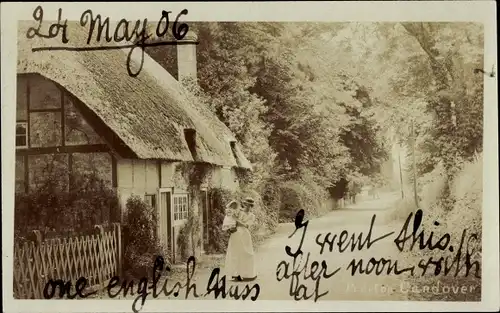 24 May 06
I went this
after noon with
one english Miss at
Candover